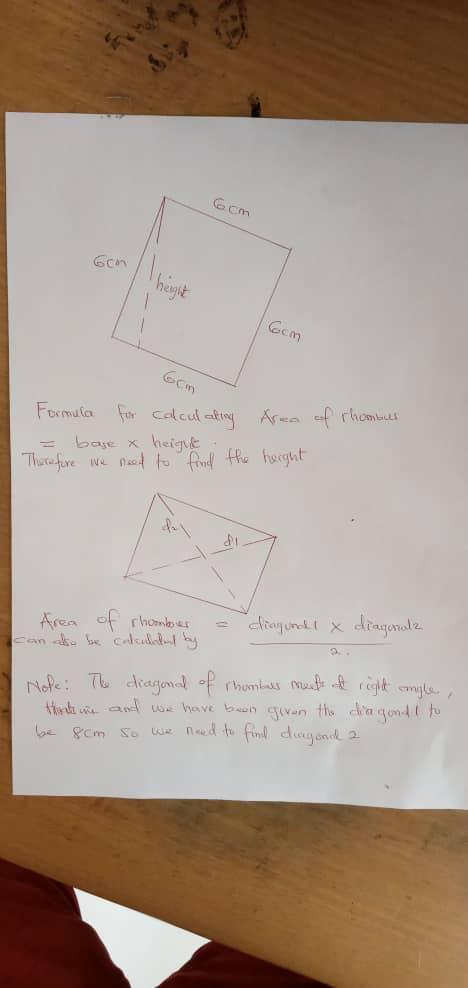 6cm
6cm
height
6cm
6cm
Formula for calculating Area of rhombus
= base x height.
Therefore we need to find the height
d2
d1
Area of rhombus = diagonal 1 x diagonal 2
can also be calculated by 2.
Note: The diagonal of rhombus meets at right angle,
and we have been given the diagonal 1 to
be 8cm so we need to find diagonal 2